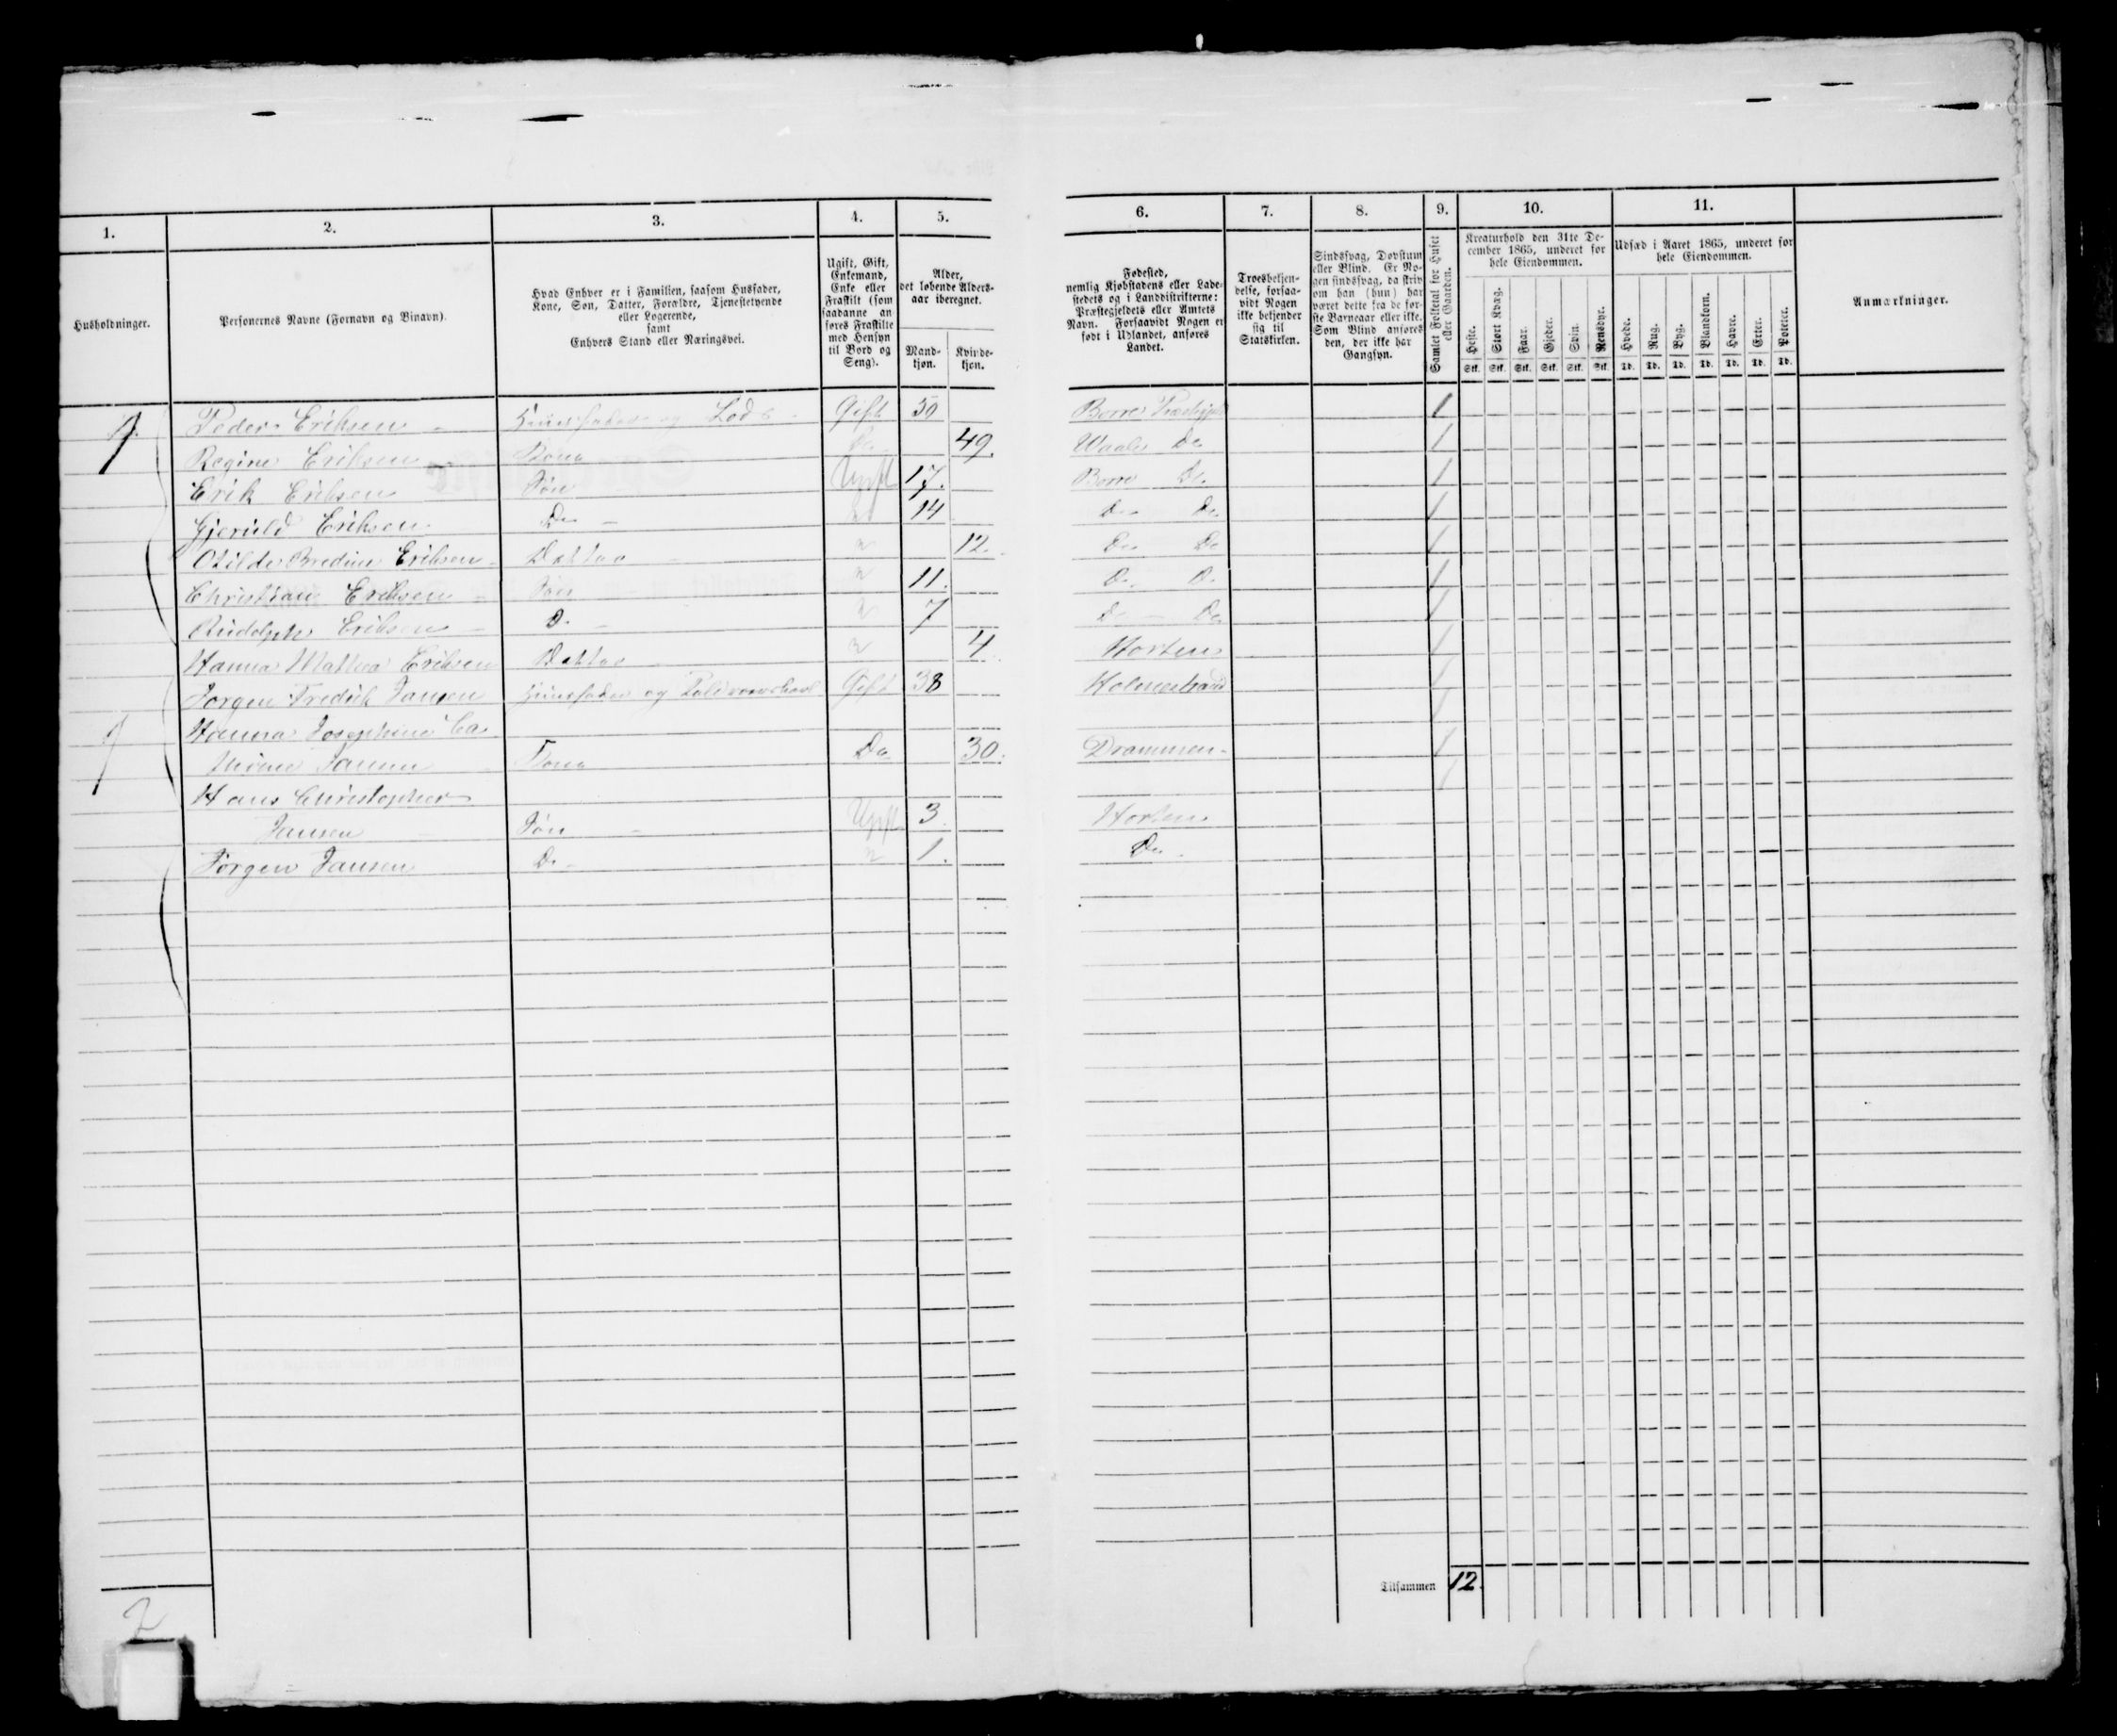 1. 2. 3. 4. 5. 6. 7. 8. 9. 10. 11.
Husholdninger.
Personernes Navne (Fornavn og Binavn).
Hvad Enhver er i Familien, saasom Husfader,
Kone, Søn, Datter, Forældre, Tjenestetyende
eller Logerende,
samt
Enhvers Stand eller Næringsvei.
Ugift, Gift,
Enkemand,
Enke eller
Fraskilt (som
saadanne an-
føres Fraskilte
med Hensyn
til Bord og
Seng).
Alder,
det løbende Alders-
aar iberegnet.
Mand-
kjøn.
Kvinde-
kjøn.
Fødested,
nemlig Kjøbstadens eller Lade-
stedets og i Landdistrikterne:
Præstegjeldets eller Amtets
Navn. Forsaavidt Nogen er
født i Udlandet, anføres
Landet.
Troesbekjen-
delse, forsaa-
vidt Nogen
ikke bekjender
sig til
Statskirken.
Sindssvag, Døvstum
eller Blind. Er No-
gen sindssvag, da skriv
om han (hun) har
været dette fra de før-
ste Barneaar eller ikke.
Som Blind anføres
den, der ikke har
Gangsyn.
Samlet Folketal for Huset
eller Gaarden.
Kreaturhold den 31te De-
cember 1865, underet for
hele Eiendommen.
Heste. Stort Kvæg. Faar. Gjeder. Svin. Rensdyr.
Stk. Stk. Stk. Stk. Stk. Stk.
Udsæd i Aaret 1865, underet for
hele Eiendommen.
Hvede. Rug. Byg. Blandkorn. Havre. Erter. Poteter.
Td. Td. Td. Td. Td. Td. Td.
Anmærkninger.
1. Peder Eriksen Huusfader og Lods Gift 50 Borre 1
Regine Eriksen Kone Do 49. Waaler Do 1
Erik Eriksen Søn Ugift 17. Borre Do 1
Gjeruld Eriksen Do 14 Do Do 1
Otilde Bredine Eriksen Datter 12. Do Do 1
Christian Eriksen Søn 11. Do Do 1
Rudolph Eriksen Do 7 Do Do 1
Hanna Mathea Eriksen Datter 4 Horten 1
1 Jørgen Fredrik Jansen Huusfader og Gift 38 Holmestrand 1
Hanna Josephine Ca
thrine Jansen Kone Do 30. Drammen 1
Hans Christopher 1
Jansen Søn Ugift 3 Horten
Jørgen Jansen Do 1. Do
Tilsammen 12.
2